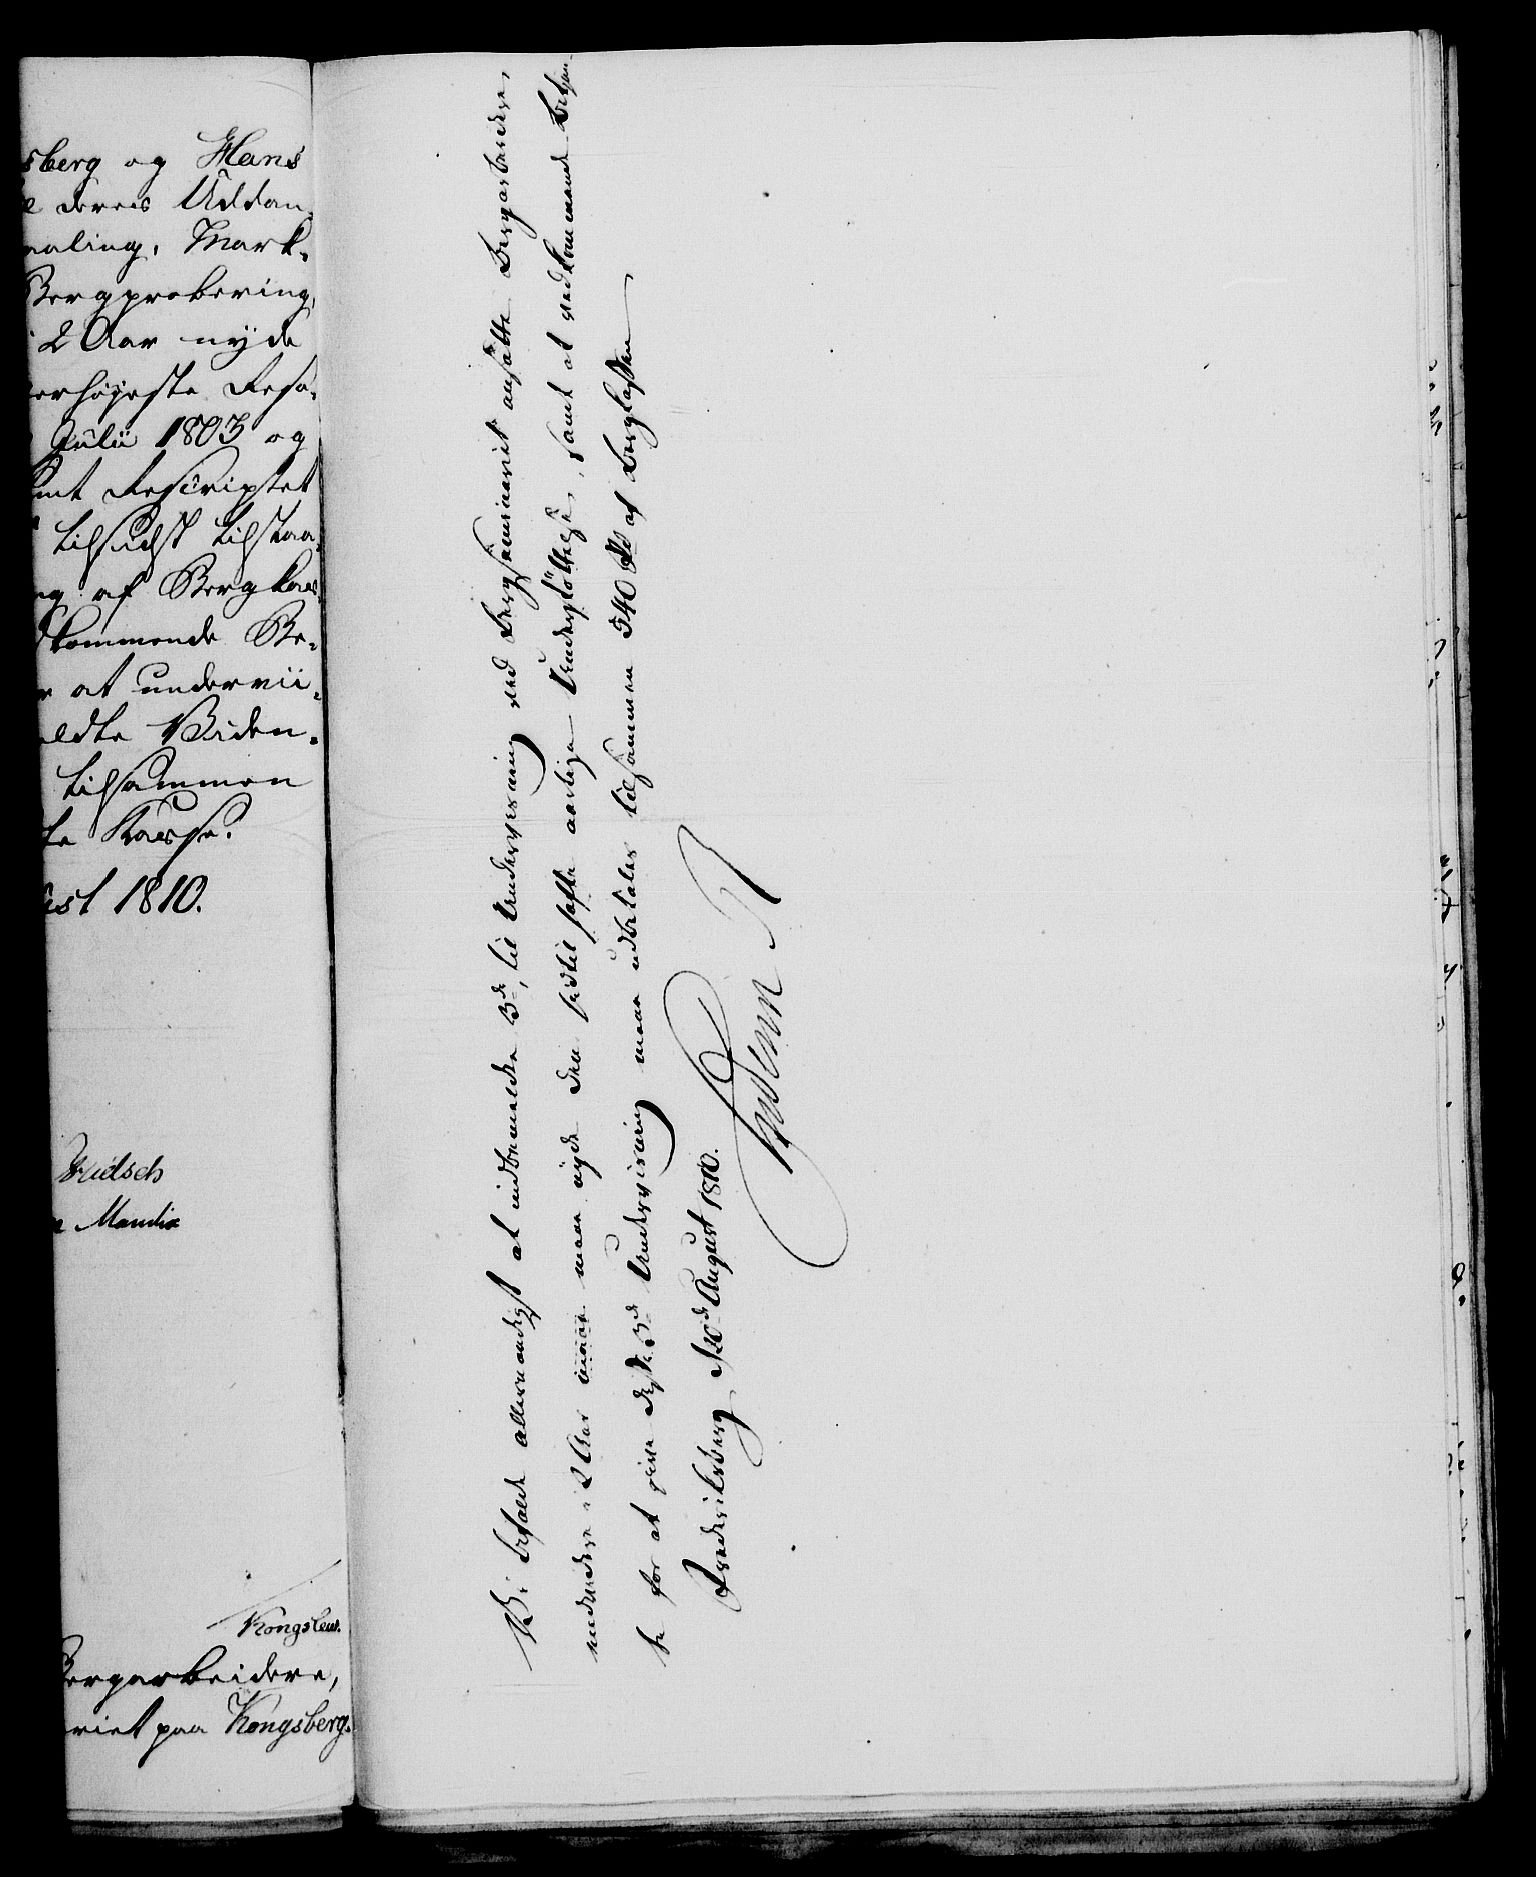 sberg og Hans
deres Uddan-
maaling, Mark-
Bergprobering,
i 2 Aar nyde
erhøjeste Reso-
Julii 1803 og
samt Rescriptet
tilsidst tilstaa-
ng af Bergkas-
dkommende Be-
at undervii-
eldte Viden-
tilsammen
te Kasse.
ust 1810.
Mandix
Kongsberg.
Bergarbeidere,
riet paa Kongsberg.
Vi befale allernaadigst at indbemeldte 3de, til Underviisning ved Bergseminariet ansatte Bergarbeidere,
endvidere i 2 Aar maae maae nyde den hidtil hafte aarlige Understøttelse, samt at vedkommende Betjen-
te for at give disse 3de Underviisning maae udbetales tilsammen 540 Rd af Bergkassen
Frederiksberg d 20de August 1810.
Frederik R